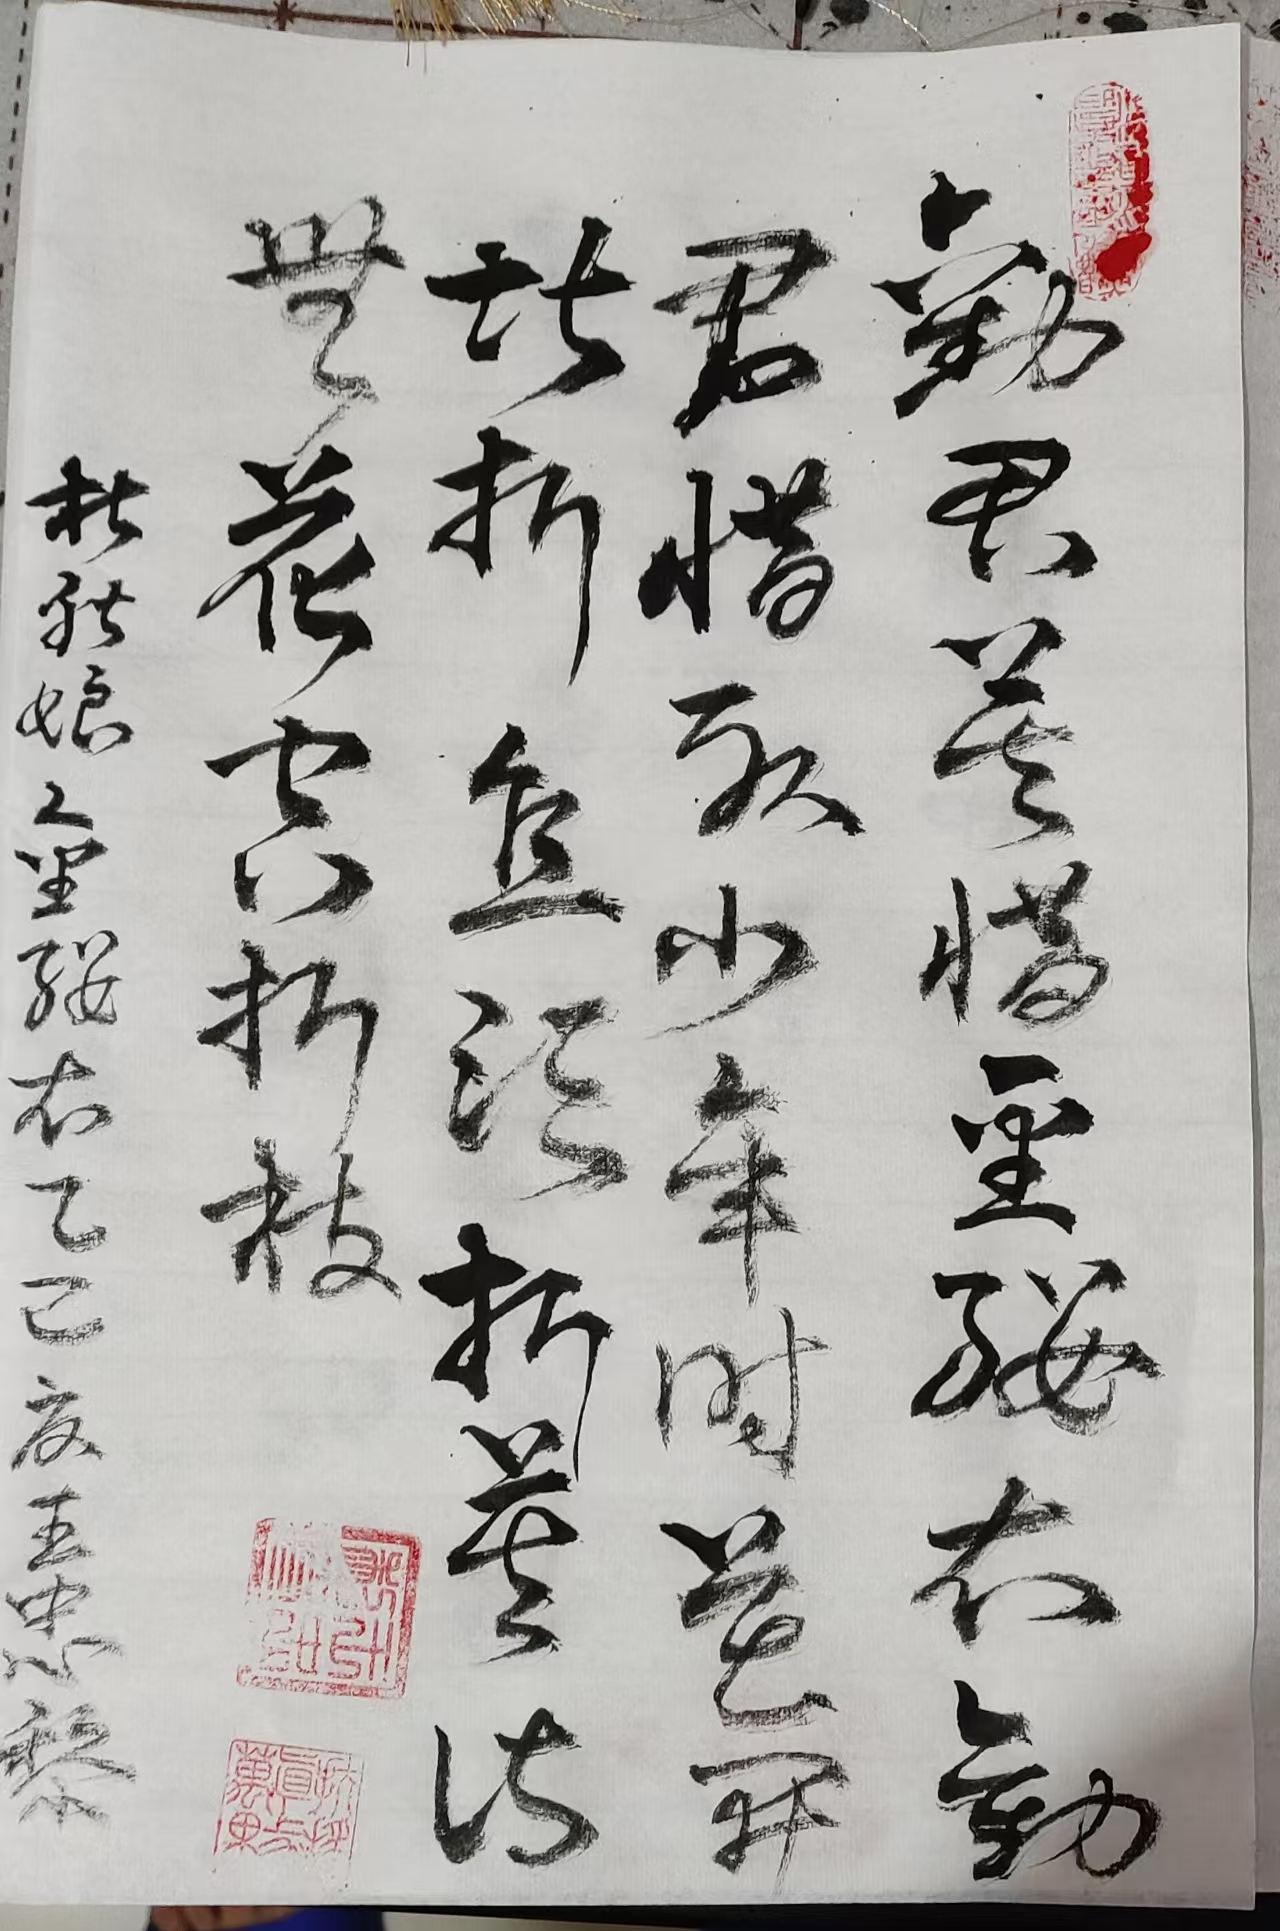 劝君莫惜金缕衣劝
君惜取少年时花开
堪折直须折莫待
无花空折枝
杜秋娘金缕衣乙巳夏王忠黎